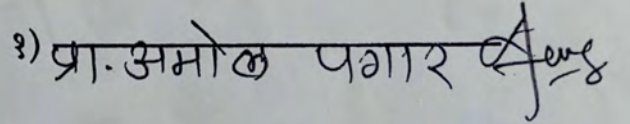 १) प्रा. अमोल पगार